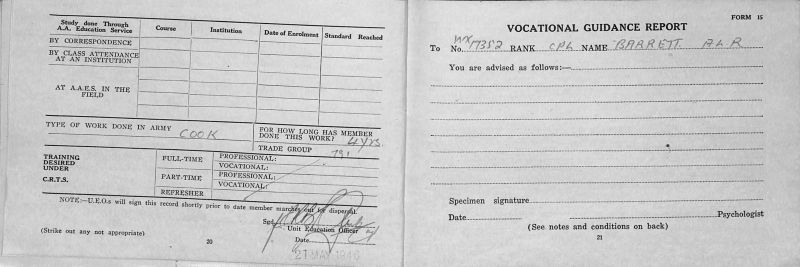 Study done Through
A.A. Education Service
Course
Institution
Date of Enrolment
Standard Reached
BY CORRESPONDENCE
BY CLASS ATTENDANCE
AT AN INSTITUTION
AT A.A.E.S. IN THE
FIELD
TYPE OF WORK DONE IN ARMY
COOK
FOR HOW LONG HAS MEMBER
DONE THIS WORK? 4 yrs.
TRADE GROUP
TRAINING
DESIRED
UNDER
C.R.T.S.
FULL-TIME
PROFESSIONAL:
VOCATIONAL:
PART-TIME
PROFESSIONAL:
VOCATIONAL:
REFRESHER
NOTE:—U.E.Os will sign this record shortly prior to date member marches out for dispersal.
Sgd.
Unit Education Officer
(Strike out any not appropriate)
Date
21 MAY 1946
20
FORM 15
VOCATIONAL GUIDANCE REPORT
To No. WX17352 RANK CPL NAME BARRETT A.L.R
You are advised as follows:—
Specimen signature
Date
Psychologist
(See notes and conditions on back)
21